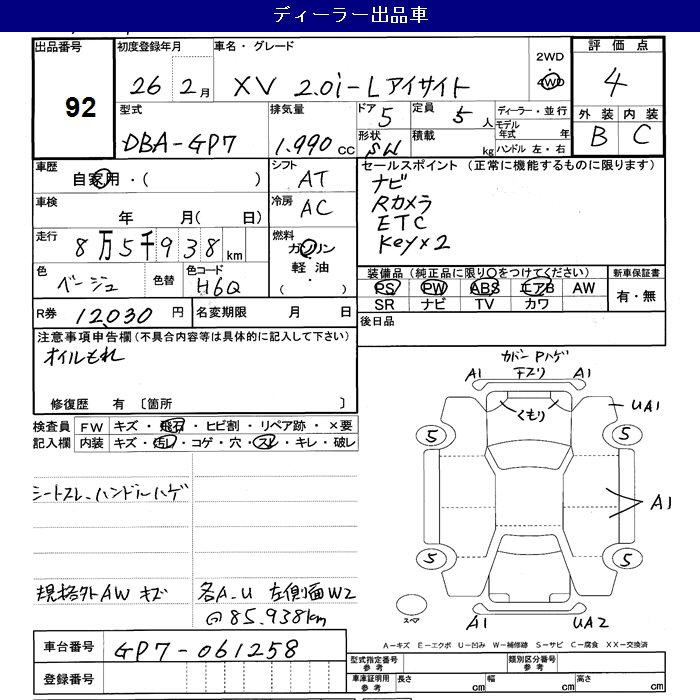 ディーラー出品車
出品番号
92
初度登録年月
26年 2月
車名・グレード
XV 2.0i-L アイサイト
2WD
・
4WD
評価点
4
外装 内装
B C
型式
DBA-GP7
排気量
1.990 cc
ドア 5
定員 5 人
形状 SW
積載 kg
ディーラー・並行
モデル年式 年
ハンドル 左・右
車歴
自家用・( )
シフト
AT
車検
年 月( 日)
冷房
AC
走行
8万5千938 km
燃料
ガソリン
軽油
・( )
色
ベージュ
色替
色コード
H6Q
R券 12,030 円
名変期限 月 日
セールスポイント（正常に機能するものに限ります）
ナビ
Rカメラ
ETC
Key×2
装備品（純正品に限り○をつけてください）
PS PW ABS エアB AW
SR ナビ TV カワ
新車保証書
有・無
後日品
注意事項申告欄（不具合内容等は具体的に記入して下さい）
オイルもれ
修復歴 有〔箇所 〕
検査員
記入欄
FW キズ・飛石・ヒビ割・リペア跡・×要
内装 キズ・汚レ・コゲ・穴・スレ・キレ・破レ
シートスレ、ハンドルハゲ
規格外AW キズ
各A-U 左側面W2
@85,938km
カバーPハゲ
A1 下スリ A1
くもり
UA1
5 5
A1
5 5
スペア
A1 UA2
A－キズ E－エクボ U－凹み W－補修跡 S－サビ C－腐食 XX－交換済
車台番号 GP7-061258
登録番号
型式指定番号
参考
類別区分番号
参考
車庫証明用
参考
長さ cm 幅 cm 高さ cm